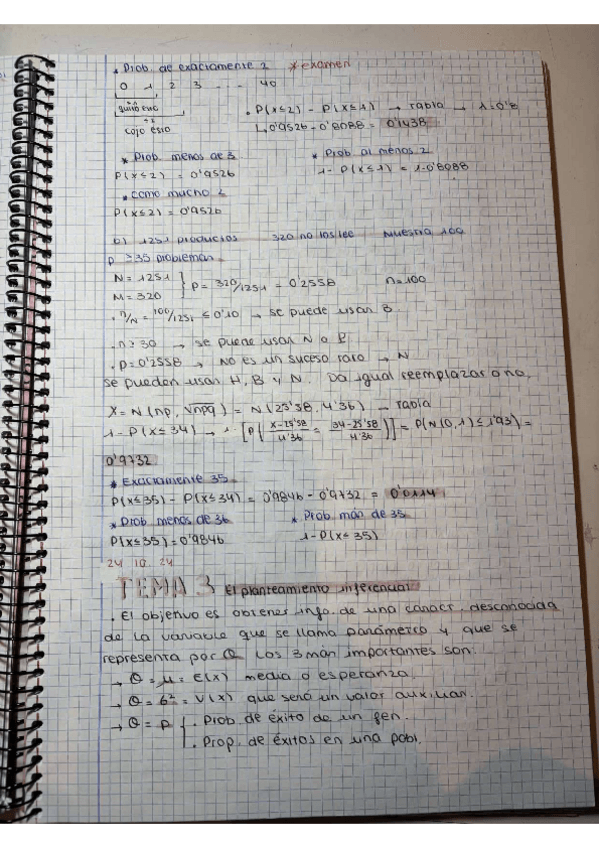 * Prob. de exactamente 2 * examen
0 1 2 3 ... 40
quito eno
cojo esto
· P(x≤2) - P(x≤1) → tabla → λ=0'8
↳ 0'9526 - 0'8088 = 0'1438
* Prob menos de 3 * Prob al menos 2
P(x≤2) = 0'9526 1 - P(x≤1) = 1-0'8088
* como mucho 2
P(x≤2) = 0'9526
b) 1251 productos 320 no los lee muestra 100
p ≥35 problemas
N = 1251
M = 320 } P = 320/1251 = 0'2558 n=100
· n/N = 100/1251 ≤ 0'10 → se puede usar B
· n ≥ 30 → se puede usar N o P
· p=0'2558 → No es un suceso raro → N
Se pueden usar H, B y N. Da igual reemplazar o no.
X = N(np, √npq) = N(25'58, 4'36) → tabla
1 - P(x≤34) → 1 - [P(x-25'58/4'36 = 34-25'58/4'36)] = P(N(0,1) ≤ 1'93) =
0'9732
* Exactamente 35
P(x≤35) - P(x≤34) = 0'9846 - 0'9732 = 0'0114
* Prob menos de 36 * Prob más de 35
P(x≤35) = 0'9846 1-P(x≤35)
24 10 24
TEMA 3 El planteamiento inferencial
· El objetivo es obtener info. de una caract. desconocida
de la variable que se llama parámetro y que se
representa por θ. Los 3 más importantes son:
→ θ = μ = E(x) media o esperanza.
→ θ = σ² = V(x) que será un valor auxiliar.
→ θ = p { · Prob. de éxito de un fen.
· Prop. de éxitos en una pobl.